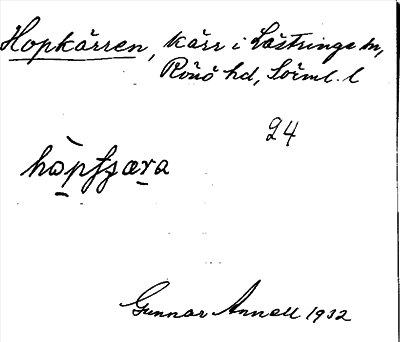 Hopkärren, kärr i Lästringe sn,
Rönö hd, Sörml. l
24
Gunnar Annell 1932